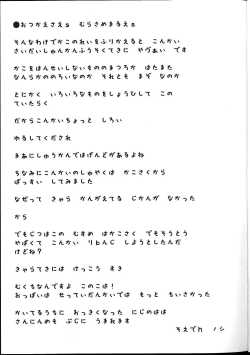 ●おつかえさえぉ むらさめまるえぉ
そんなわけでかこのれいをふりかえると こんかい
さいだいしゅんかんふうそくてきに やヴぁい です
かこをはんせいしないもののまつろか はたまた
なんらかののろいなのか それとも まぞ なのか
とにかく いろいろなものをしょうひして この
ていたらく
だからこんかいちょっと しろい
ゆるしてくだされ
まあにしゅうかんではげんどがあるよね
ちなみにこんかいのしゅやくは かこさくから
ばっすい してみました
なぜって きゃら かんがえてる じかんが なかった
から
でもじつはこの むすめ はかこさくで とうじょう
やばくて こんかい しようとしたんだ
けどね?
きゃらてきには けっこう すき
むくちなんですよ このこは!
おっぱいは せっていだんかいでは もっと ちいさかった
かいてるうちに おっきくなった にじのはは
さんにんめも ぶじに うまれます